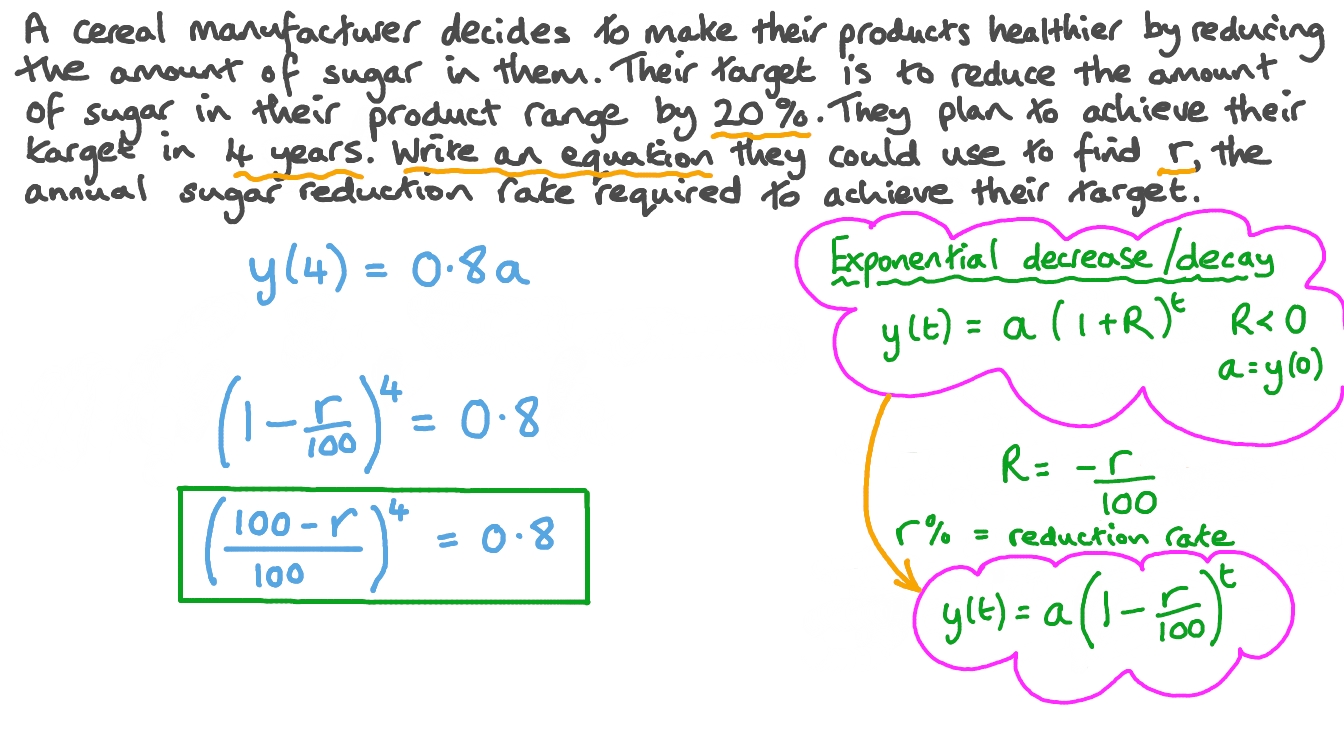 A cereal manufacturer decides to make their products healthier by reducing
the amount of sugar in them. Their target is to reduce the amount
of sugar in their product range by 20%. They plan to achieve their
target in 4 years. Write an equation they could use to find r, the
annual sugar reduction rate required to achieve their target.
y(4) = 0.8a
(1 - r/100)^4 = 0.8
((100 - r)/100)^4 = 0.8
Exponential decrease/decay
y(t) = a(1+R)^t R<0
a=y(0)
R = -r/100
r% = reduction rate
y(t) = a(1 - r/100)^t